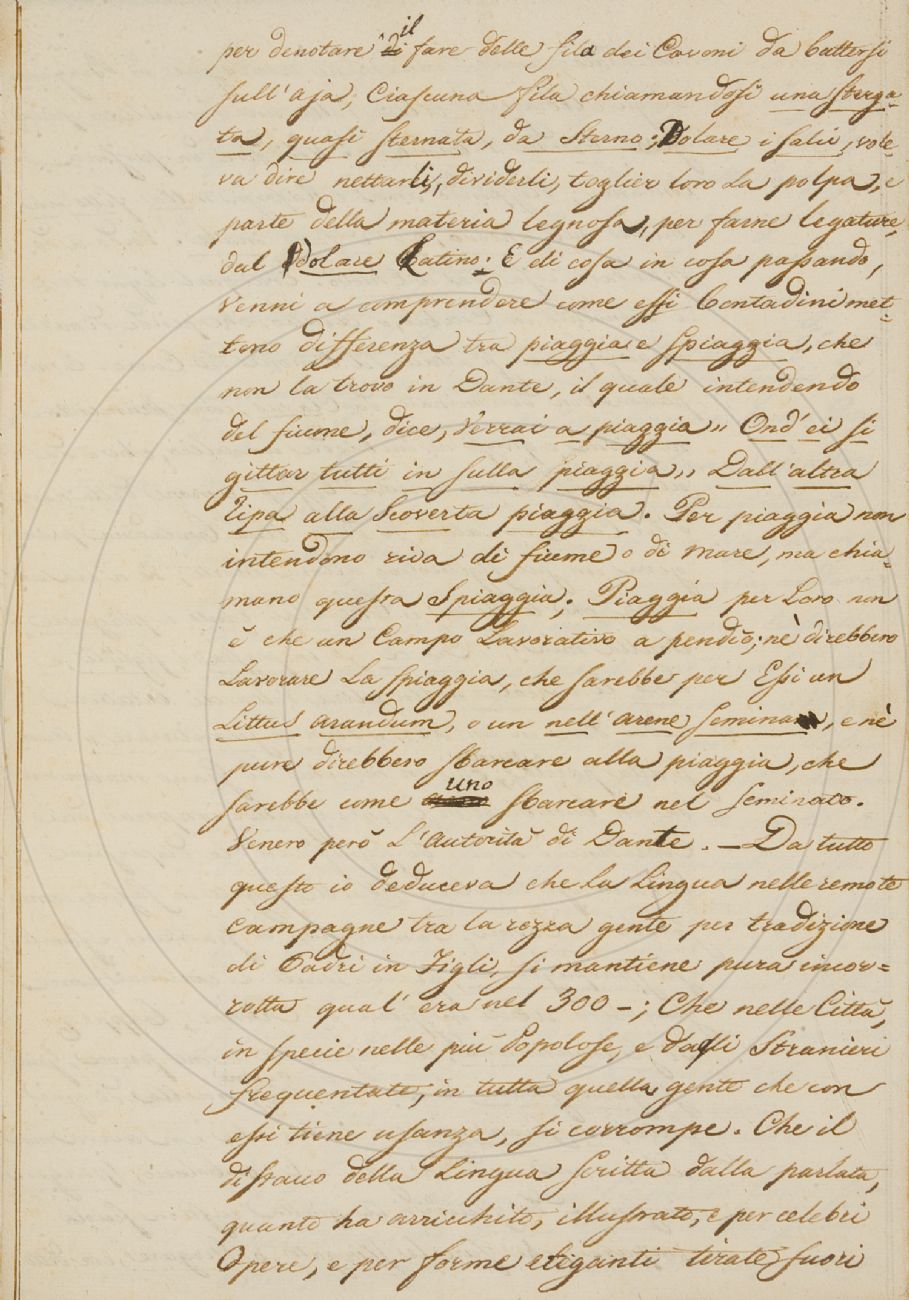 per denotare il fare delle fila dei Covoni da battersi
sull'aja, Ciascuna fila chiamandosi una sterga=
ta, quasi sternata, da Sterno; Dolare i salci, vole=
va dire nettarli, dividerli, toglier loro la polpa, e
parte della materia legnosa, per farne legature,
dal dolare Latino: E di cosa in cosa passando,
venni a comprendere come essi Contadini met=
tono differenza tra piaggia e spiaggia, che
non la trovo in Dante, il quale intendendo
del fiume, dice, Verrai a piaggia „ Ond' ei si
gittar tutti in sulla piaggia „ Dall'altra
ripa alla scoverta piaggia. Per piaggia non
intendono riva di fiume o di mare, ma chia=
mano questa Spiaggia; Piaggia per Loro non
è che un Campo Lavorativo a pendio; nè direbbero
Lavorare La spiaggia, che sarebbe per Essi un
Littus arandum, o un nell'arene semina, e nè
pure direbbero sbarcare alla piaggia, che
sarebbe come uno sbarcare nel seminato.
Venero però l'autorità di Dante. — Da tutto
questo io deduceva che la Lingua nelle remote
campagne tra la rozza gente per tradizione
di Padri in Figli, si mantiene pura incor=
rotta qual' era nel 300 –; Che nelle Città,
in specie nelle più Popolose, e dagli Stranieri
frequentate, in tutta quella gente che con
essi tiene usanza, si corrompe. Che il
distacco della Lingua scritta dalla parlata,
quanto ha arricchito, illustrato, e per celebri
Opere, e per forme eleganti tirate fuori